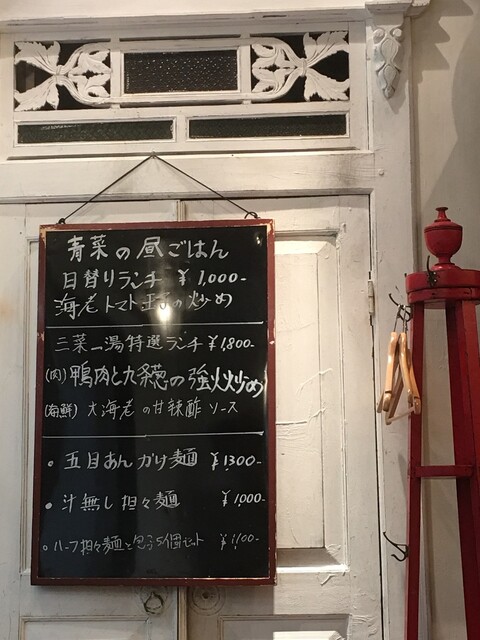 青菜の昼ごはん
日替りランチ ¥1,000-
海老トマト玉子の炒め
三菜一湯特選ランチ ¥1,800-
(肉) 鴨肉と九条葱の強火炒め
(海鮮) 大海老の甘辣酢ソース
• 五目あんかけ麺 ¥1300-
• 汁無し担々麺 ¥1,000-
• ハーフ担々麺と包子5個セット ¥1,100-